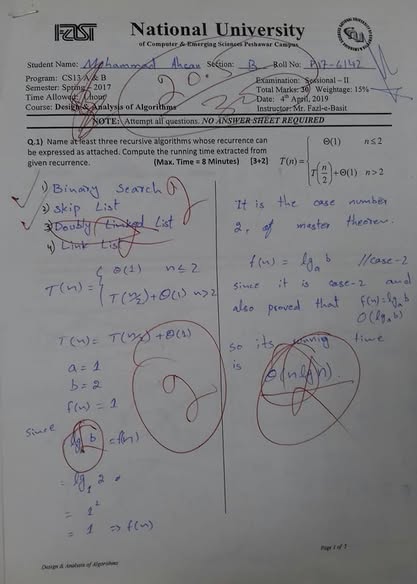 FAST
National University
of Computer & Emerging Sciences Peshawar Campus
Student Name: Mohammad Ahsan Section: B Roll No: P17-6142
Program: CS13 A & B
Semester: Spring - 2017
Time Allowed: 1 hour
Course: Design & Analysis of Algorithms
Examination: Sessional – II
Total Marks: 30 Weightage: 15%
Date: 4th April, 2019
Instructor: Mr. Fazl-e-Basit
NOTE: Attempt all questions. NO ANSWER SHEET REQUIRED
Q.1) Name at least three recursive algorithms whose recurrence can
be expressed as attached. Compute the running time extracted from
given recurrence. (Max. Time = 8 Minutes) [3+2]
T(n) = { Θ(1) n ≤ 2
T(n/2) + Θ(1) n > 2
1) Binary Search
2) Skip List
3) Doubly Linked List
4) Link List
T(n) = { Θ(1) n ≤ 2
T(n/2) + Θ(1) n > 2
T(n) = T(n/2) + Θ(1)
a = 1
b = 2
f(n) = 1
Since
lg b = f(n)
= lg₁ 2
= 1²
= 1 ⇒ f(n)
2
It is the case number
2, of master theorem.
f(n) = lgₐ b //case-2
since it is case-2 and
also proved that f(n) = lgₐ b
Θ(lgₐ b)
so its running time
is Θ(n lg n).
Page 1 of 7
Design & Analysis of Algorithms